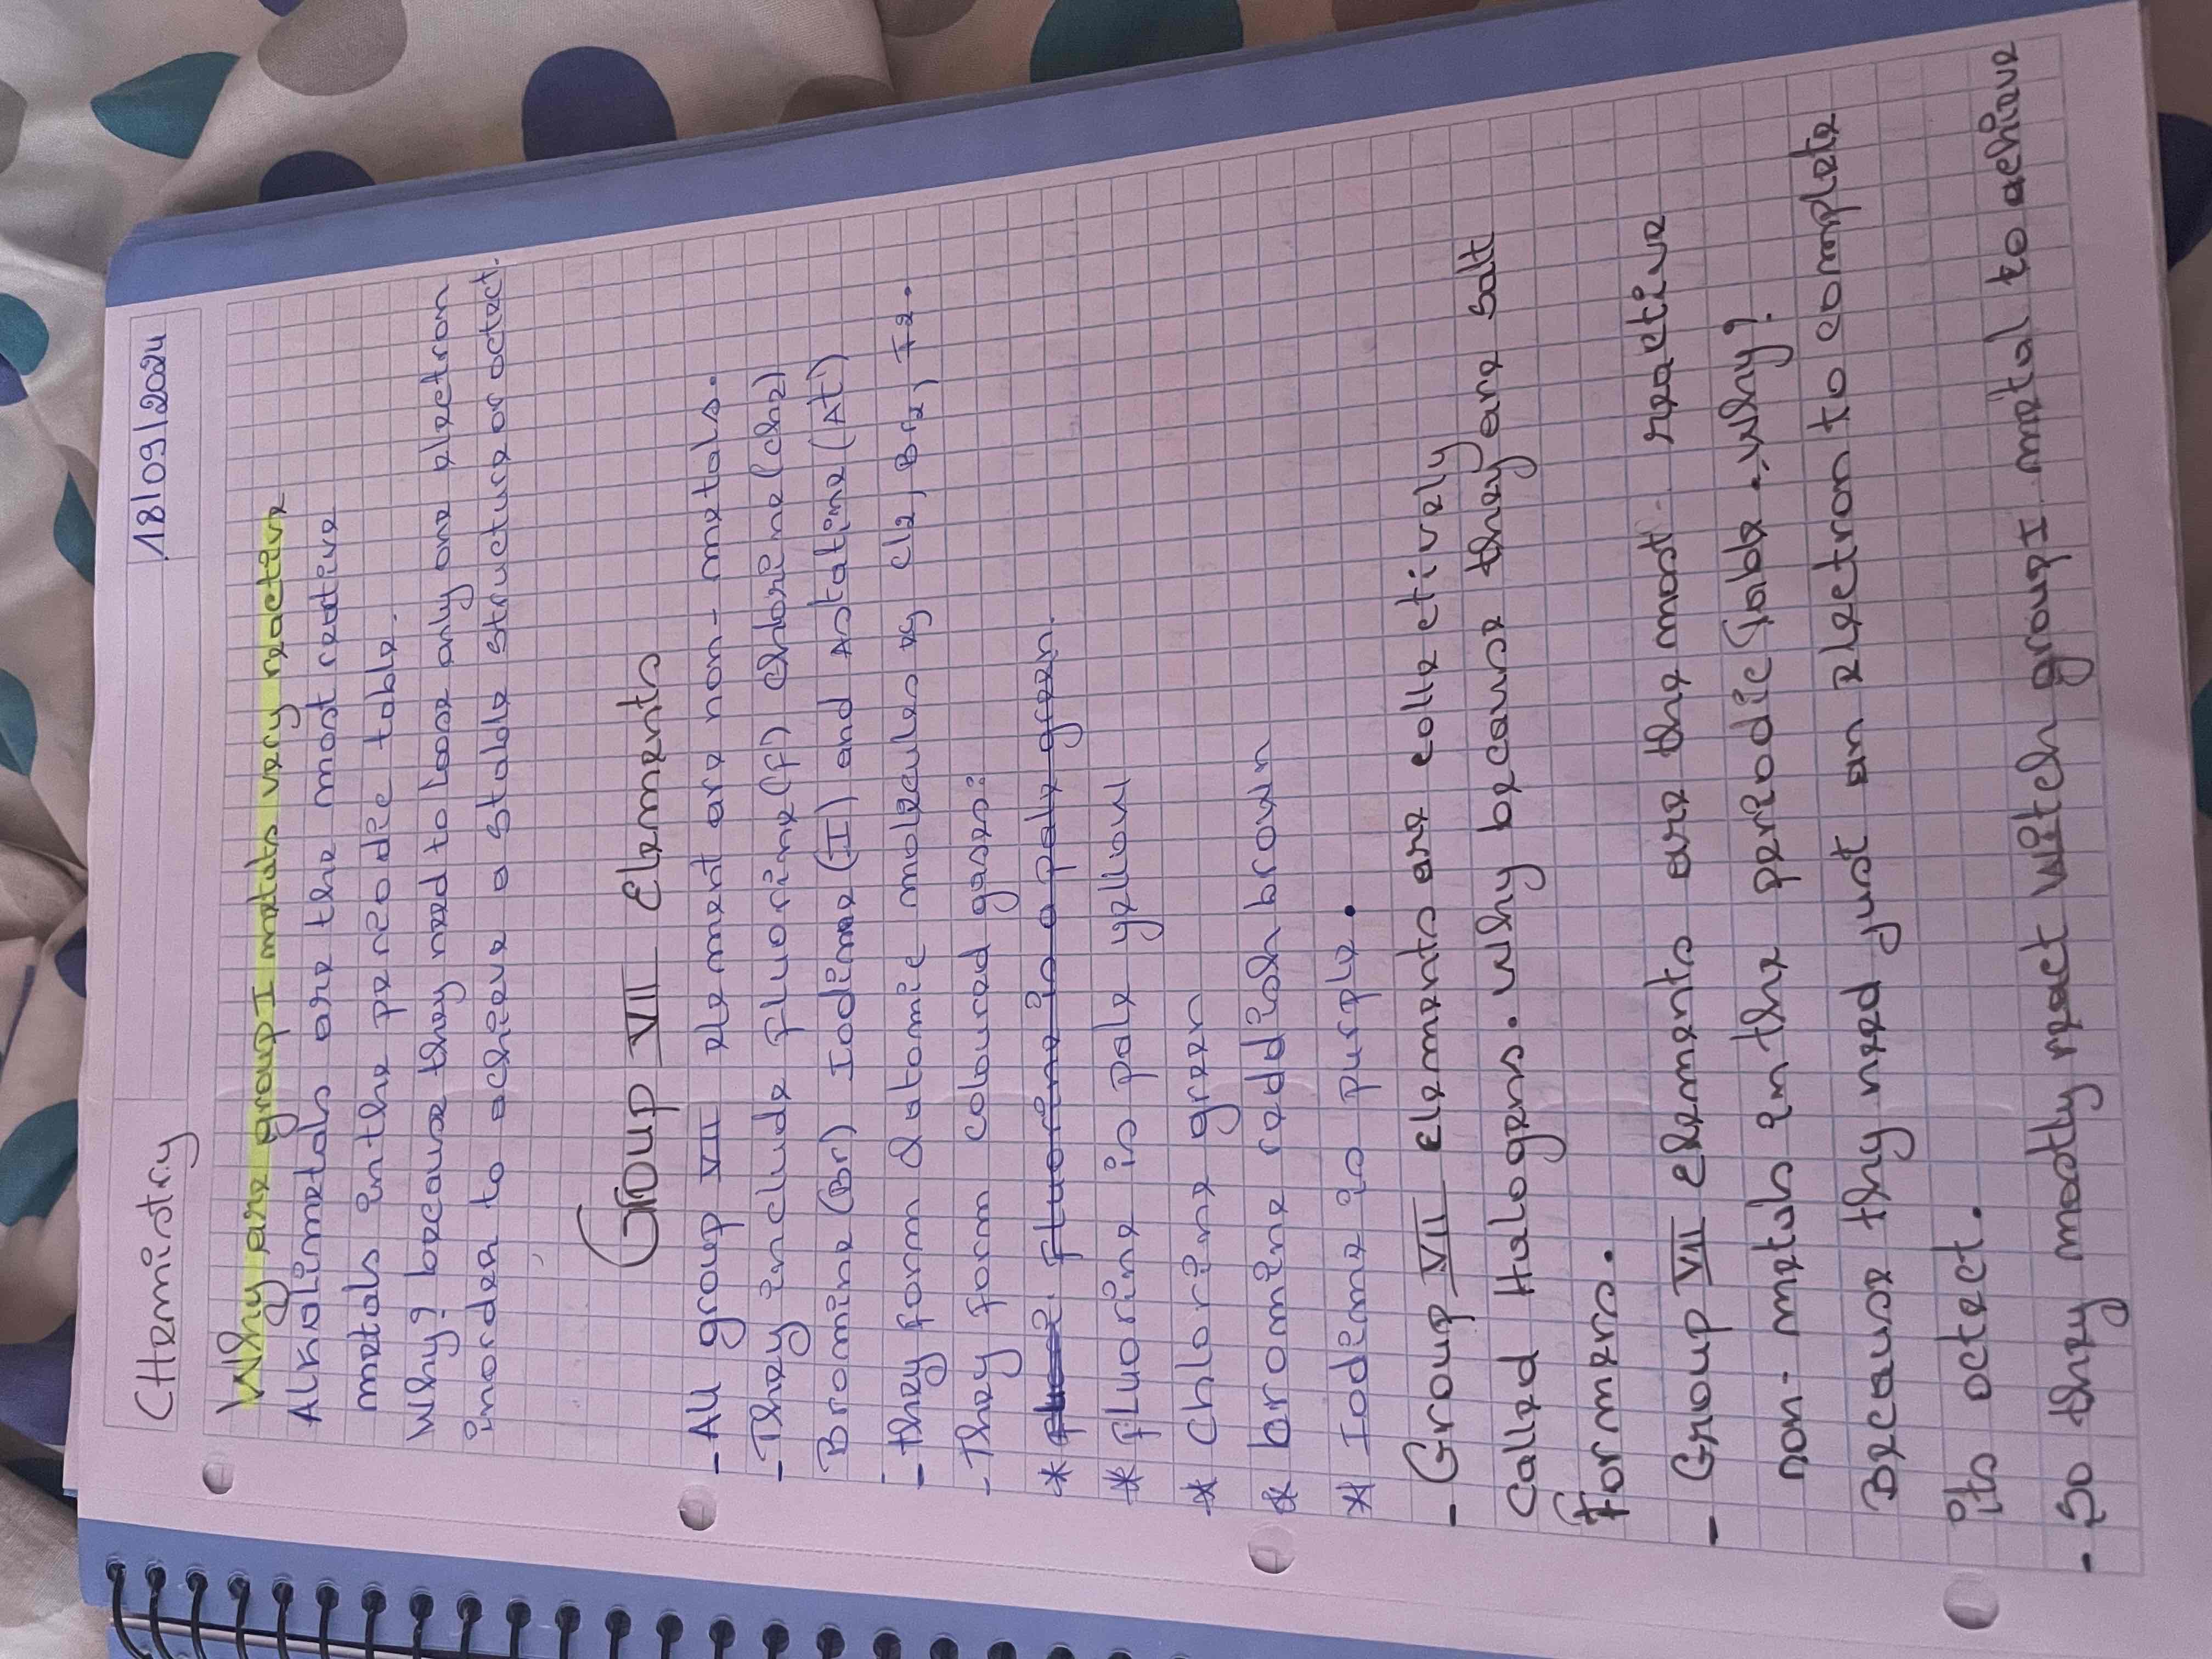 CHemistry
18/09/2024
Why are group I metals very reactive
Alkalimetals are the most reative
metals in the periodic table.
Why? because they need to loose only one electron
inorder to acheive a stable structure or octect.
Group VII Elements
- All group VII element are non-metals.
- They include fluorine (f) chlorine (chl)
Bromine (Br) Iodine (I) and Astatine (At)
- They form diatomic molecules eg cl2, Br2, I2.
- They form coloured gases:
* fluori. fluorine is a pale green.
* fluorine is pale yellow
* chlorine green
* bromine reddish brown
* Iodine is purple.
- Group VII Elements are collectively
called Halogens. why because they are salt
formers.
- Group VII elements are the most reactive
non-metals in the periodic Table. Why?
Because they need just an electron to complete
its octect.
- So they mostly react witch group I metal to achieve